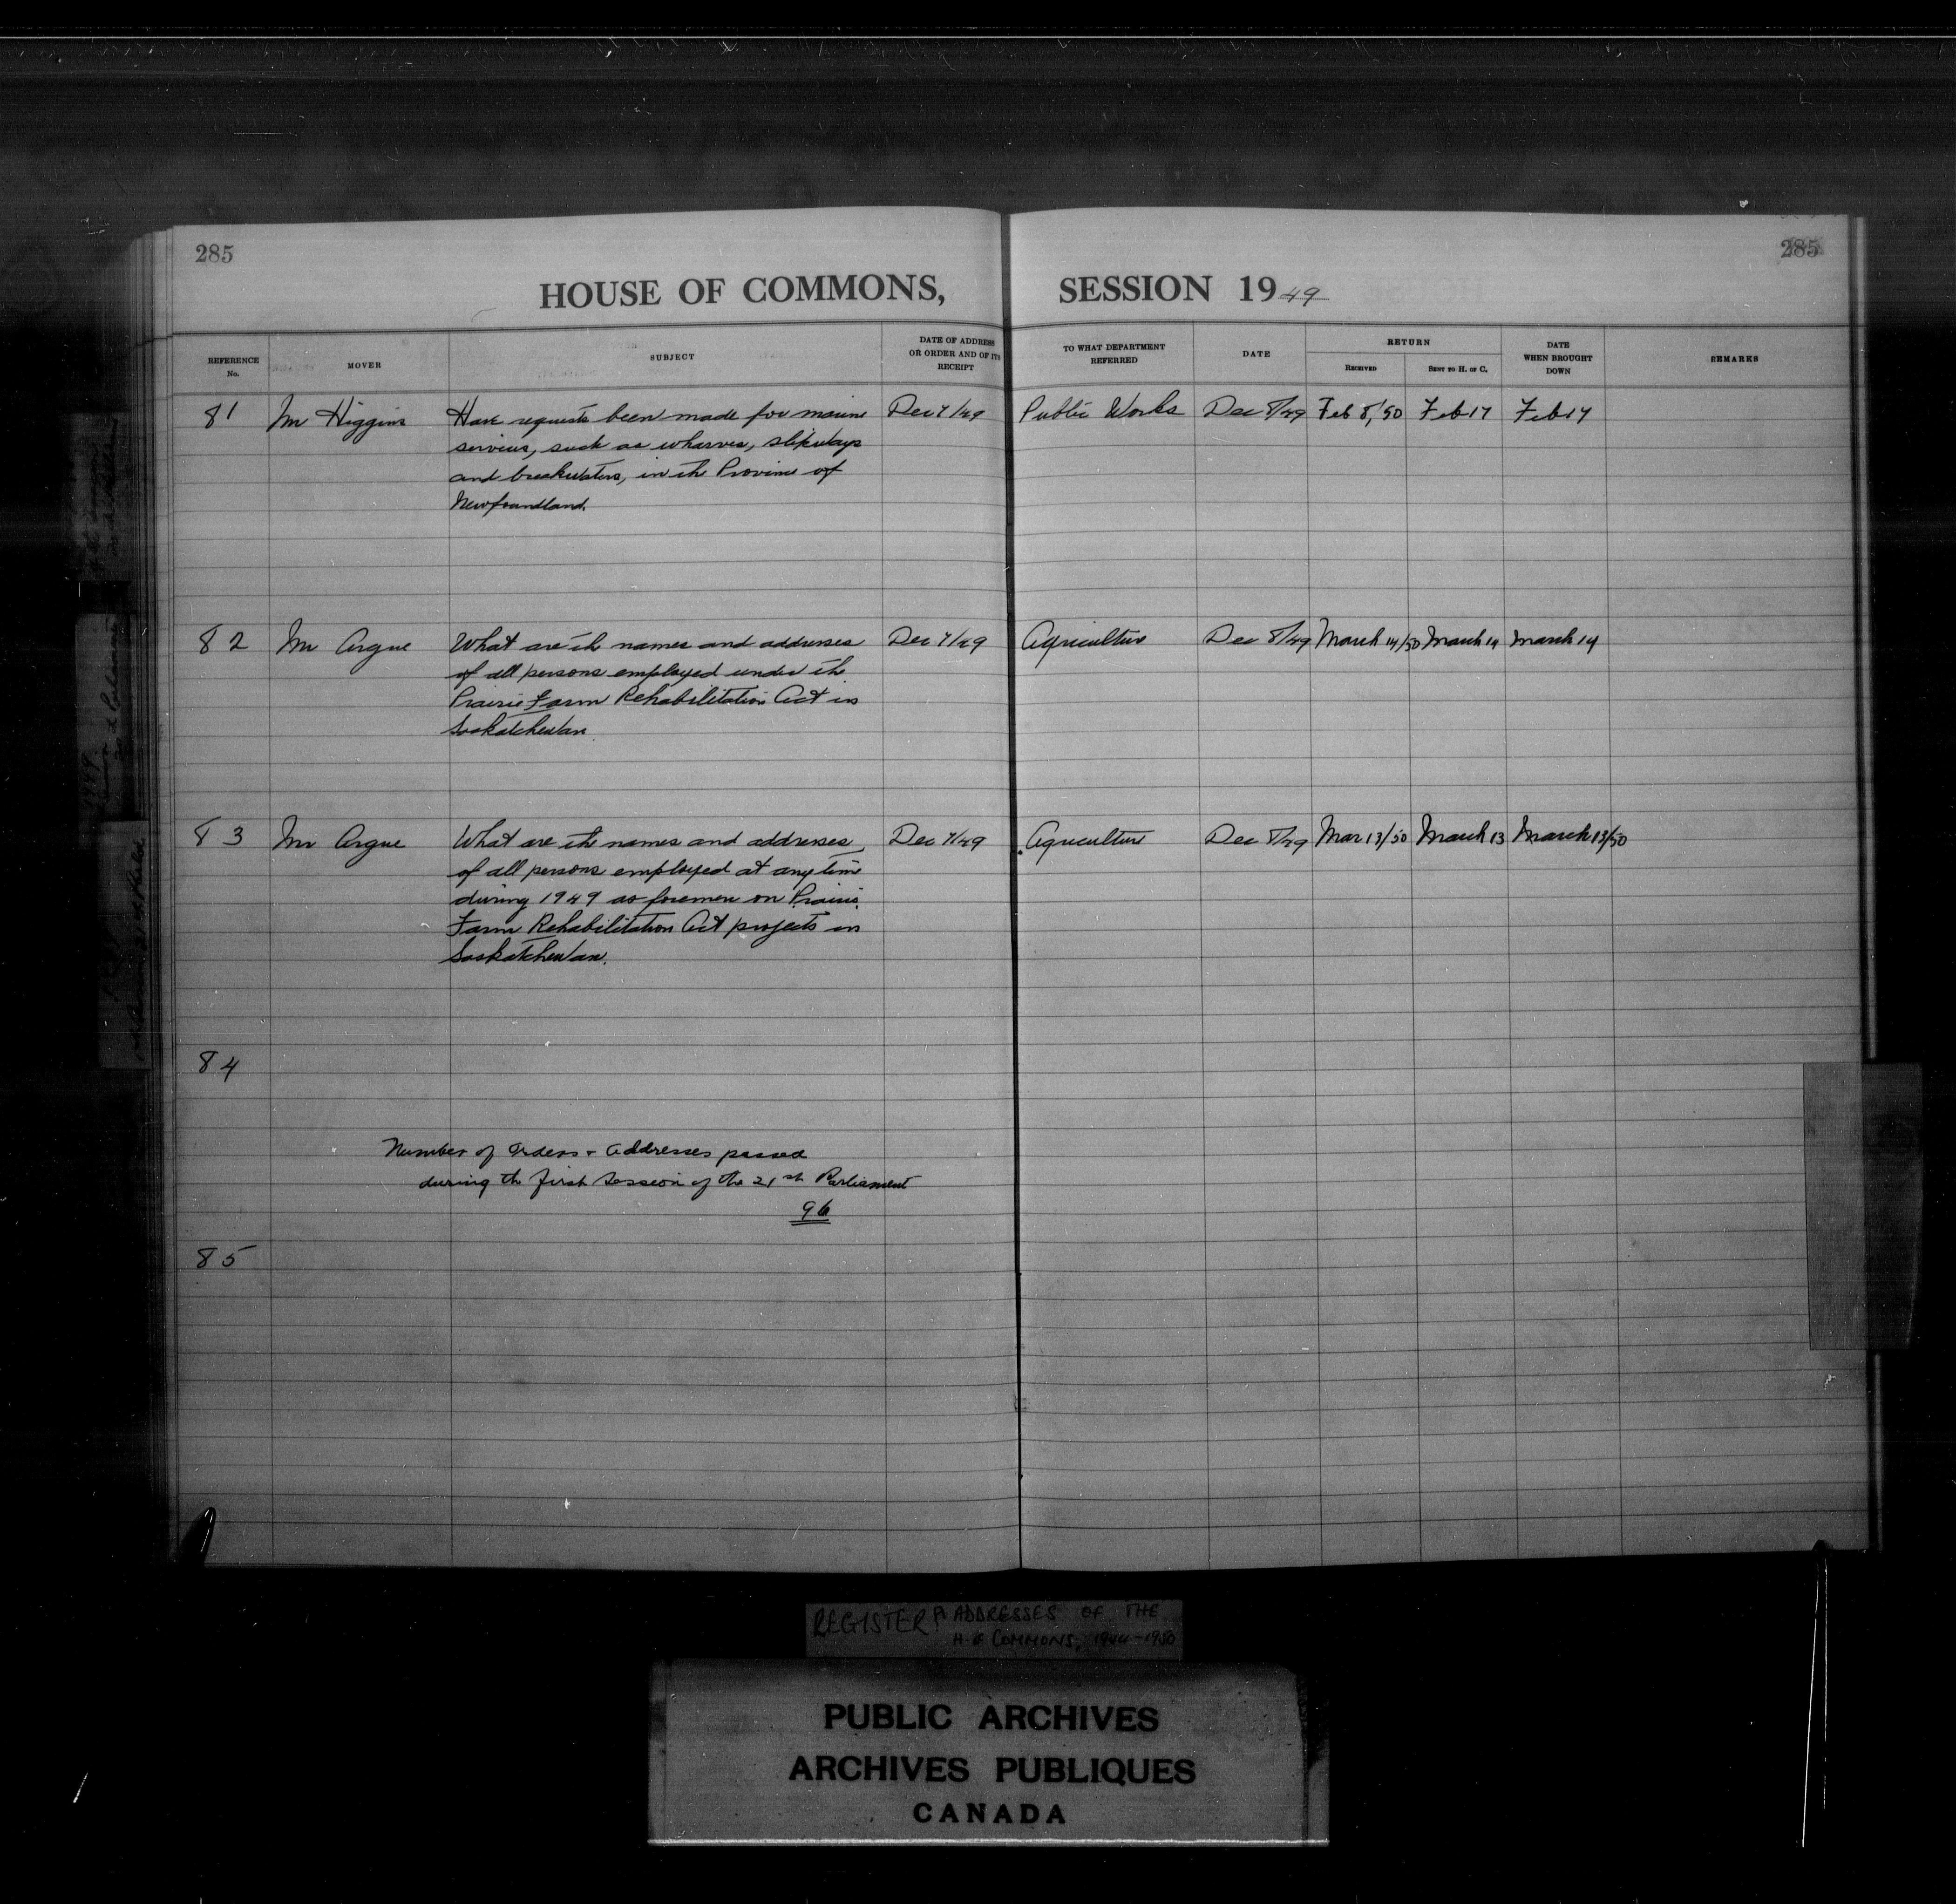 285
285
HOUSE OF COMMONS, SESSION 1949
REFERENCE No.
MOVER
SUBJECT
DATE OF ADDRESS OR ORDER AND OF ITS RECEIPT
TO WHAT DEPARTMENT REFERRED
DATE
RETURN
RECEIVED
SENT TO H. OF C.
DATE WHEN BROUGHT DOWN
REMARKS
81 Mr Higgins Have requests been made for marine Dec 7/49 Public Works Dec 8/49 Feb 8/50 Feb 17 Feb 17
services, such as wharves, slipways
and breakwaters, in the Province of
Newfoundland.
82 Mr Argue What are the names and addresses Dec 7/49 Agriculture Dec 8/49 March 14/50 March 14 March 14
of all persons employed under the
Prairie Farm Rehabilitation Act in
Saskatchewan.
83 Mr Argue What are the names and addresses Dec 7/49 Agriculture Dec 8/49 Mar 13/50 March 13 March 13/50
of all persons employed at any time
during 1949 as foremen on Prairie
Farm Rehabilitation Act projects in
Saskatchewan.
84
Number of Orders + Addresses passed
during the first Session of the 21st Parliament
96
85
REGISTER ADDRESSES OF THE
H. of COMMONS, 1944-1950
PUBLIC ARCHIVES
ARCHIVES PUBLIQUES
CANADA